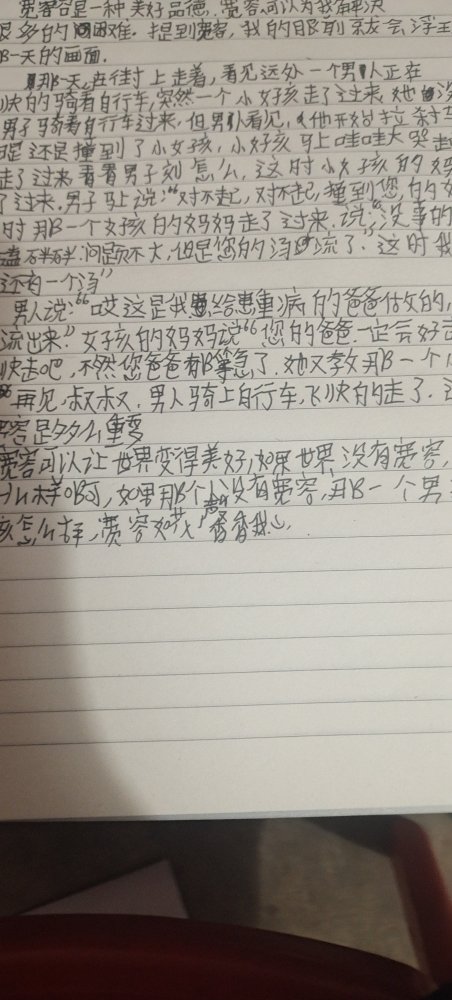 宽容是一种美好品德，宽容可以为我们解决
很多的困难．提到宽容，我的眼前就会浮
那一天的画面．
那天，在街上走着，看见远处一个男人正在
快的骑着自行车，突然一个小女孩走了过来，她没
男子骑着自行车过来，但男人看见，他开始拉刹
是还是撞到了小女孩，小女孩马上哇哇大哭
走了过来看看男子刻怎么，这时小女孩的妈
了过来，男子马上说："对不起，对不起，撞到您的女
时那一个女孩的妈妈走了过来，说"没事的
问题不大，但是您的汤流了．"这时我
还有一个汤"
男人说："哎这是我给患重病的爸爸做的，
流出来."女孩的妈妈说"您的爸爸一定会好
快走吧，不然您爸爸都等急了．她又教那一个
"再见，叔叔．男人骑上自行车，飞快的走了．
容是多么重要
宽容可以让世界变得美好，如果世界没有宽容，
什么样啊，如果那个人没有宽容，那一个男
该怎么样，宽容如花香香我心．